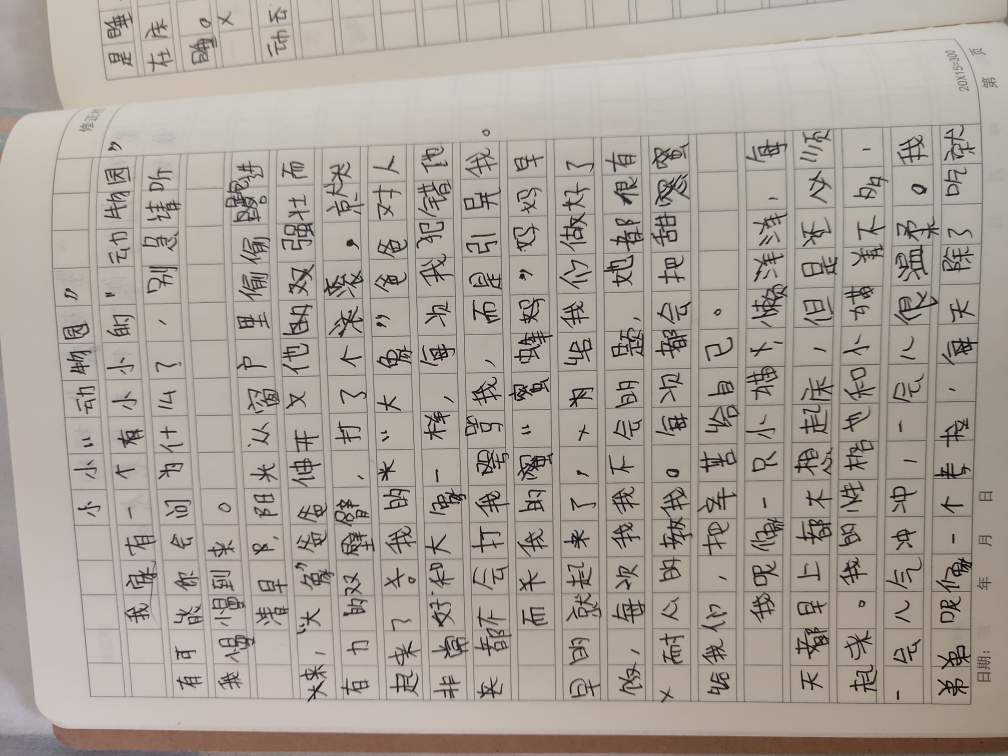 小小“动物园”
我家有一个有小小的“动物园”
有可能你会问为什么？，别急请听
我慢慢到来。
清早，阳光从窗户里偷偷进
来，“大象”爸爸伸开又他的双强壮而
有力的双臂，打了个滚滚。就
起来了。我的米“大象”爸爸对人
非常好和大象一样，每次我犯错他
都不会打我骂我，而是引导我。
而不我的蜜“蜜蜂妈”妈妈早
早的就起来了，为给我们做好了
饭，每次我我不会的题，她都很有
耐心的教我。每次都会把甜蜜
给我们，把辛苦给自己。
我呢像一只小猫，懒洋洋，每
天都早上都不想起床，但是还必须
起来。我的性格也和小猫差不多，
一会儿气冲冲，一会儿很温柔。我
弟弟呢像一个考拉，每天除了吃就
日期： 年 月 日
20X15=300 第 页
是睡
在床
睡。